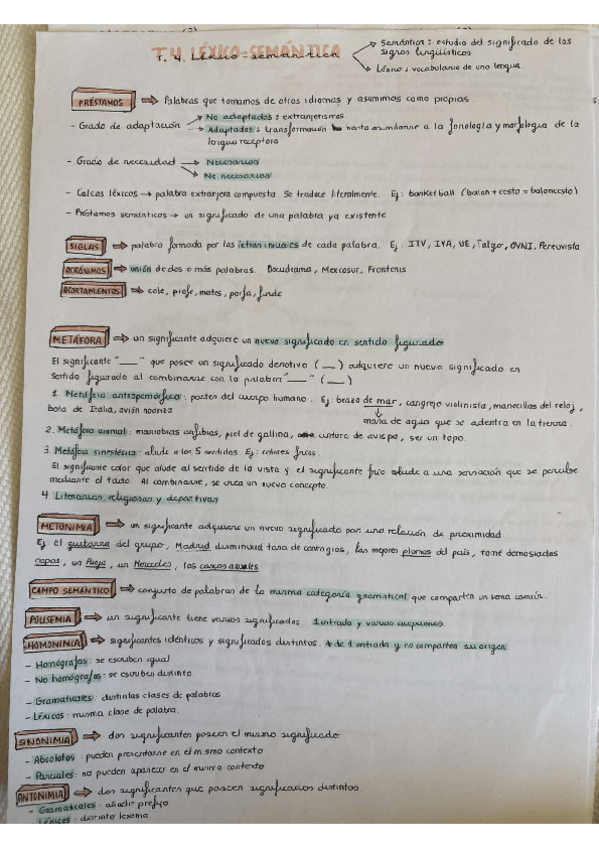 T.4. LÉXICO-SEMÁNTICA
T. 4. Léxico-semántica
Semántica: estudio del significado de los signos lingüísticos
Léxico: vocabulario de una lengua.
PRÉSTAMOS → Palabras que tomamos de otros idiomas y asumimos como propias
- Grado de adaptación
No adaptados: extranjerismos.
Adaptados: transformación hasta amoldarse a la fonología y morfología de la
lengua receptora
- Grado de necesidad → Necesarios
No necesarios
- Calcos léxicos → palabra extranjera compuesta. Se traduce literalmente. Ej: basketball (balon + cesto = baloncesto)
- Préstamos semánticos → un significado de una palabra ya existente
SIGLAS → palabra formada por las letras iniciales de cada palabra. Ej: ITV, IVA, UE, Talgo, OVNI,
ACRÓNIMOS → unión de dos o más palabras. Docudrama, Mercosur, Frontenis
ACORTAMIENTOS → cole, profe, mates, porfa, finde
METÁFORA → un significante adquiere un nuevo significado en sentido figurado
El significante "___" que posee un significado denotivo (__) adquiere un nuevo significado en
sentido figurado al combinarse con la palabra "___" (__)
1. Metáfora antropomórfica: partes del cuerpo humano. Ej: brazo de mar, cangrejo violinista, manecillas del reloj,
bota de Italia, avión nodriza
masa de agua que se adentra en la tierra.
2. Metáfora animal: maniobras anfibias, piel de gallina, cintura de avispa, ser un topo.
3. Metáfora sinestésica: alude a los 5 sentidos. Ej: colores fríos
El significante color que alude al sentido de la vista y el significante frío alude a una sensación que se percibe
mediante el tacto. Al combinarse, se crea un nuevo concepto.
4. Literarias, religiosas y deportivas
METONIMIA → un significante adquiere un nuevo significado por una relación de proximidad
Ej: el guitarra del grupo, Madrid disminuirá tasa de contagios, las mejores plumas del país, tomé demasiadas
copas, un Rioja, un Mercedes, los cascos azules
CAMPO SEMÁNTICO → conjunto de palabras de la misma categoría gramatical que comparten un sema común.
POLISEMIA → un significante tiene varios significados. 1 entrada y varias acepciones.
HOMONIMIA → significantes idénticos y significados distintos. + de 1 entrada y no comparten su origen
- Homógrafos: se escriben igual
- No homógrafos: se escriben distinto
- Gramaticales: distintas clases de palabras
- Léxicos: misma clase de palabra.
SINONIMIA → dos significantes poseen el mismo significado
- Absolutos: pueden presentarse en el mismo contexto
- Parciales: no pueden aparecer en el mismo contexto
ANTONIMIA → dos significantes que poseen significados distintos
- Gramaticales: añadir prefijo
- Léxicos: distinto lexema.